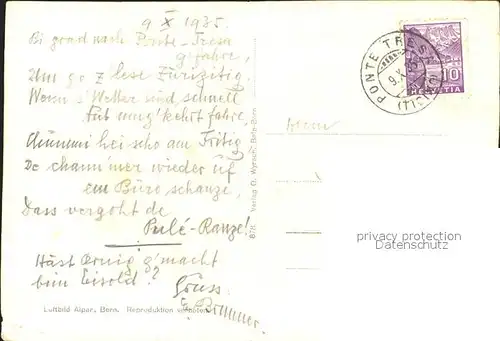 9 X 1935.
Bi grad nach Ponte-Tresa
gfahre,
Um go z'lese Zürizitig.
Wenn s'Wetter und schnell
umg'kehrt fahre,
Chumm i hei scho am Fritig
De chann mer wieder uf
em Büro schanze,
Dass vergoht de
Ranze!
Häst Ornig g'macht
bim Eisold?
Gruss:
E. Brunner.
Luftbild Alpar, Bern. Reproduktion verboten
878. Verlag O. Wyrsch, Bern
PONTE TRESA
9.X.35
(TICINO)
10
HELVETIA
Herrn
privacy protection
Datenschutz